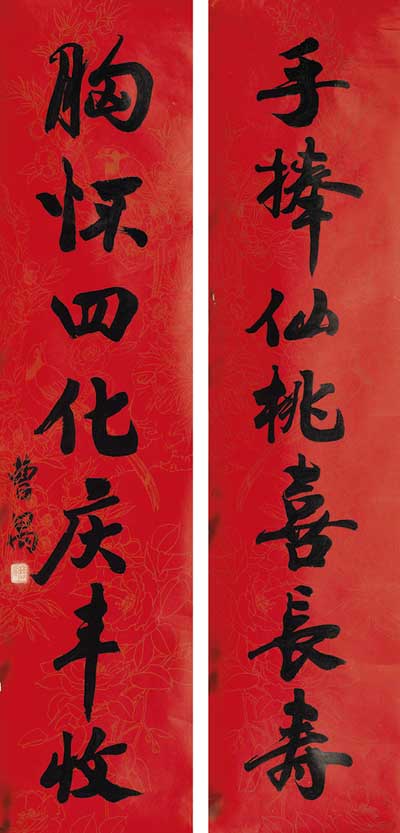 手捧仙桃喜長寿
胸怀四化庆丰收
曹禺